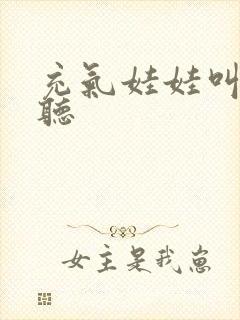 充氣娃娃叫
聽
女主是我崽